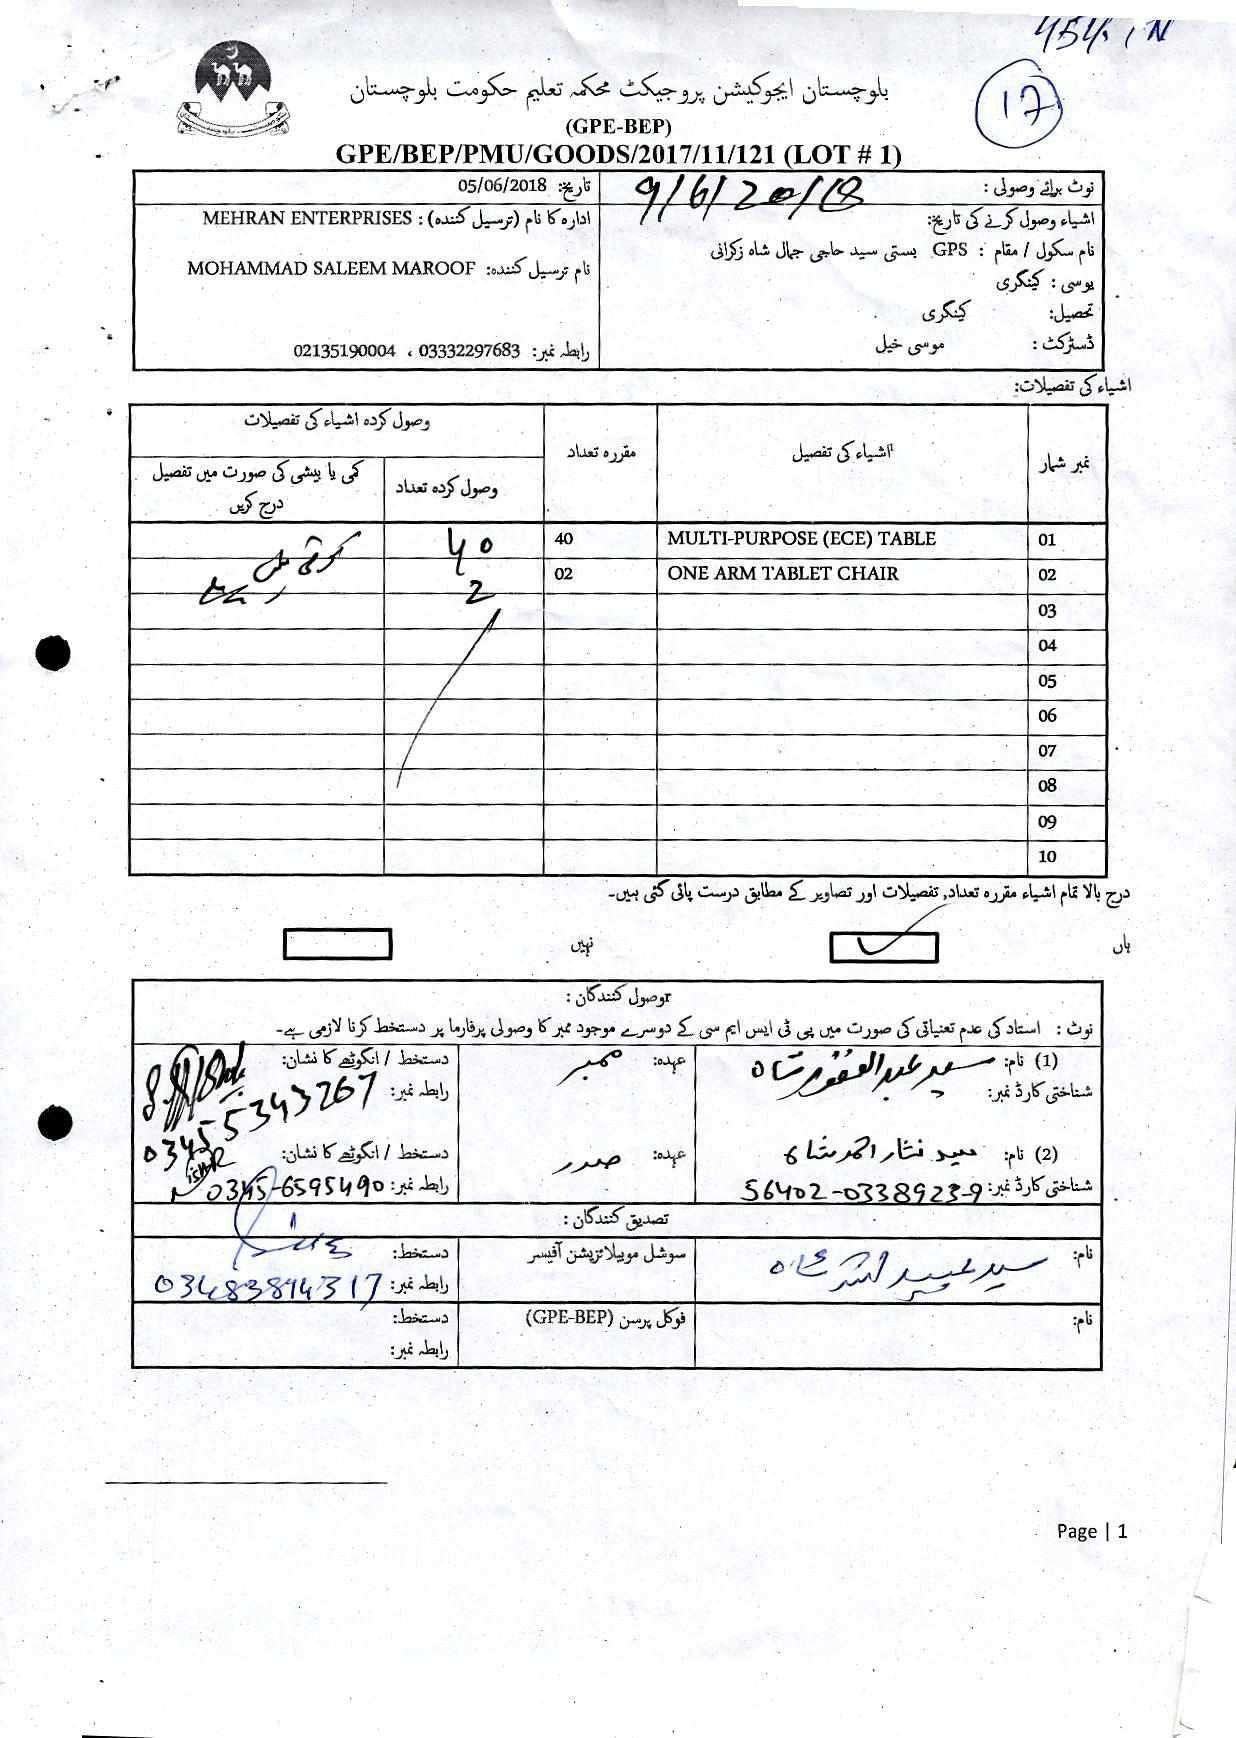 454
17
بلوچستان ایجوکیشن پروجیکٹ محکمہ تعلیم حکومت بلوچستان
(GPE-BEP)
GPE/BEP/PMU/GOODS/2017/11/121 (LOT # 1)
نوٹ برائے وصولی :
اشیاء وصول کرنے کی تاریخ: 9/6/2018
نام سکول / مقام : GPS بستی سید حاجی جمال شاہ زکرانی
یوسی : کینگری
تحصیل: کینگری
ڈسٹرکٹ : موسی خیل
تاریخ: 05/06/2018
ادارہ کا نام (ترسیل کنندہ) : MEHRAN ENTERPRISES
نام ترسیل کنندہ: MOHAMMAD SALEEM MAROOF
رابطہ نمبر: 03332297683 ، 02135190004
اشیاء کی تفصیلات:
نمبر شمار اشیاء کی تفصیل مقررہ تعداد وصول کردہ اشیاء کی تفصیلات
وصول کردہ تعداد کمی یا بیشی کی صورت میں تفصیل درج کریں
01 MULTI-PURPOSE (ECE) TABLE 40 40
02 ONE ARM TABLET CHAIR 02 2
03
04
05
06
07
08
09
10
درج بالا تمام اشیاء مقررہ تعداد, تفصیلات اور تصاویر کے مطابق درست پائی گئی ہیں۔
ہاں نہیں
وصول کنندگان :
نوٹ : استاد کی عدم تعنیاتی کی صورت میں پی ٹی ایس ایم سی کے دوسرے موجود ممبر کا وصولی پرفارما پر دستخط کرنا لازمی ہے۔
(1) نام: سید عبدالغفور شاہ عہدہ: ممبر دستخط / انگوٹھے کا نشان:
شناختی کارڈ نمبر: رابطہ نمبر: 03455343267
(2) نام: سید نثار احمد شاہ عہدہ: صدر دستخط / انگوٹھے کا نشان:
شناختی کارڈ نمبر: 56402-0338923-9 رابطہ نمبر: 0345-6595490
تصدیق کنندگان :
نام: سید عبید اللہ شاہ سوشل موبیلائزیشن آفیسر دستخط:
رابطہ نمبر: 03483894317
نام: فوکل پرسن (GPE-BEP) دستخط:
رابطہ نمبر:
Page | 1